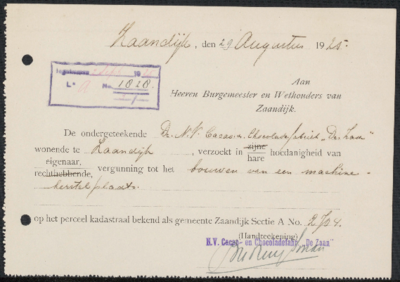 Zaandijk, den 29 Augustus 1925.
Ingekomen
L. No. 1020.
Aan
Heeren Burgemeester en Wethouders van
Zaandijk.
De ondergeteekende De N.V. Cacao- en Chocoladefabriek "De Zaan"
wonende te Zaandijk, verzoekt in zijne hare hoedanigheid van
eigenaar, rechthebbende, vergunning tot het bouwen van een machine-
herstelplaats
op het perceel kadastraal bekend als gemeente Zaandijk Sectie A No. 2724.
(Handteekening)
N.V. Cacao- en Chocoladefabr. "De Zaan"